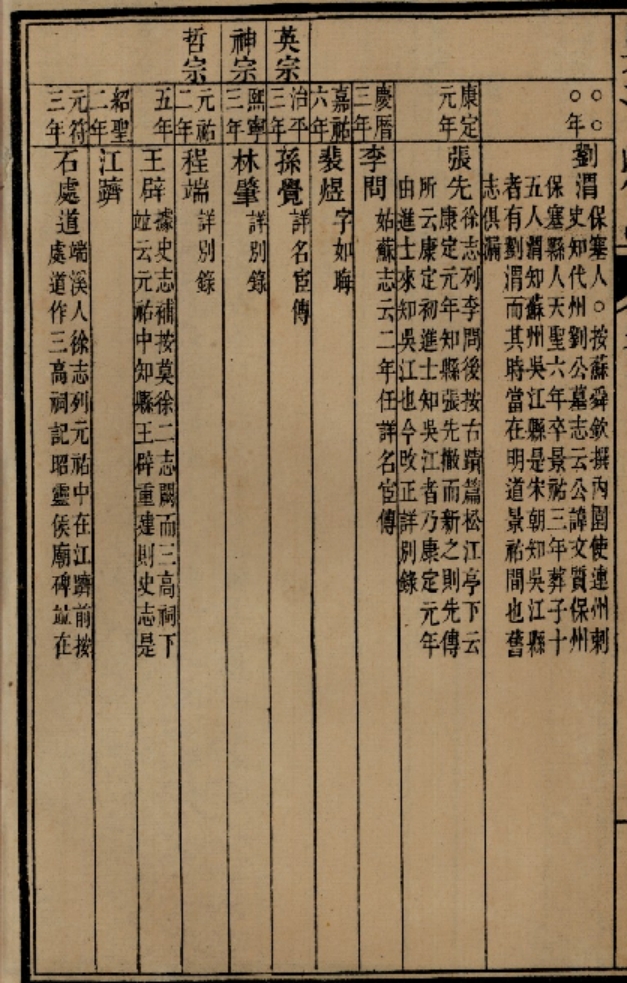 ○○○年
劉渭
保塞人○按蘇舜欽撰內園使連州刺
史知代州劉公墓志云公諱文質保州
保塞縣人天聖六年卒景祐三年葬子十
五人渭知蘇州吳江縣是宋朝知吳江縣
者有劉渭而其時當在明道景祐間也舊
志俱漏
康定元年
張先
徐志列李問後按古蹟篇松江亭下云
康定元年知縣張先撤而新之則先傳
所云康定初進士知吳江者乃康定元年
由進士來知吳江也今改正詳別錄
慶曆三年
李問
姑蘇志云二年任詳名宦傳
嘉祐六年
裴煜
字如晦
英宗
治平三年
孫覺
詳名宦傳
神宗
熙寧三年
林肇
詳別錄
哲宗
元祐二年
程端
詳別錄
五年
王辟
據史志補按莫徐二志闕而三高祠下
竝云元祐中知縣王辟重建則史志是
紹聖二年
江躋
元符三年
石處道
端溪人徐志列元祐中在江躋前按
處道作三高祠記昭靈侯廟碑竝在